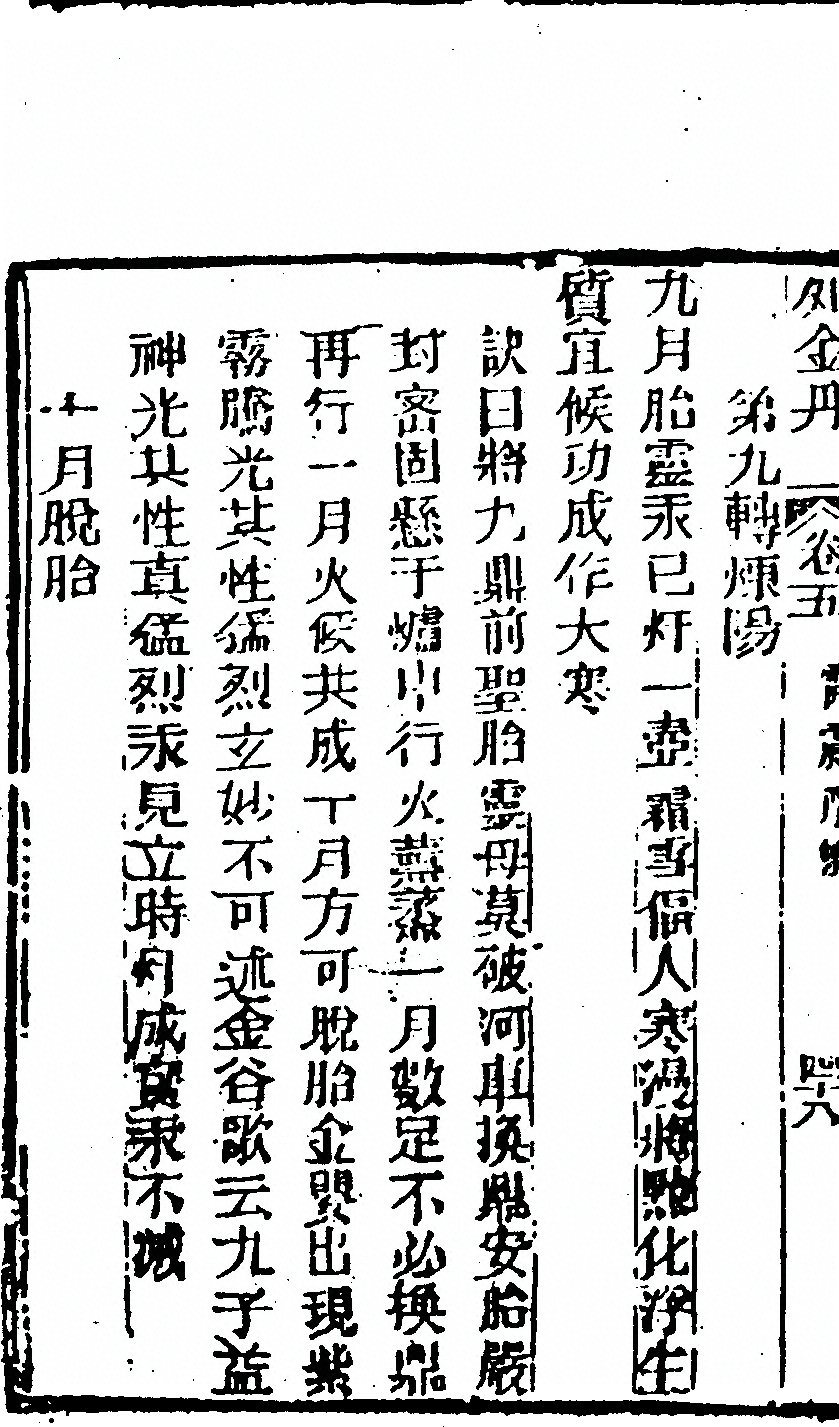 外金丹 卷五 四十八
第九轉煉陽
九月胎靈汞已灯一壺霜雪偪人寒漫將點化浮生
質宜候功成作大寒
訣曰將九鼎前聖胎靈母莫破河車換鼎安胎嚴
封密固懸于爐中行火薰蒸一月數足不必換鼎
再行一月火候共成十月方可脫胎金罌出現紫
霧騰光其性猛烈立妙不可述金谷歌云九子益
神光其性真猛烈汞見立時灯成寶永不滅
十月脫胎